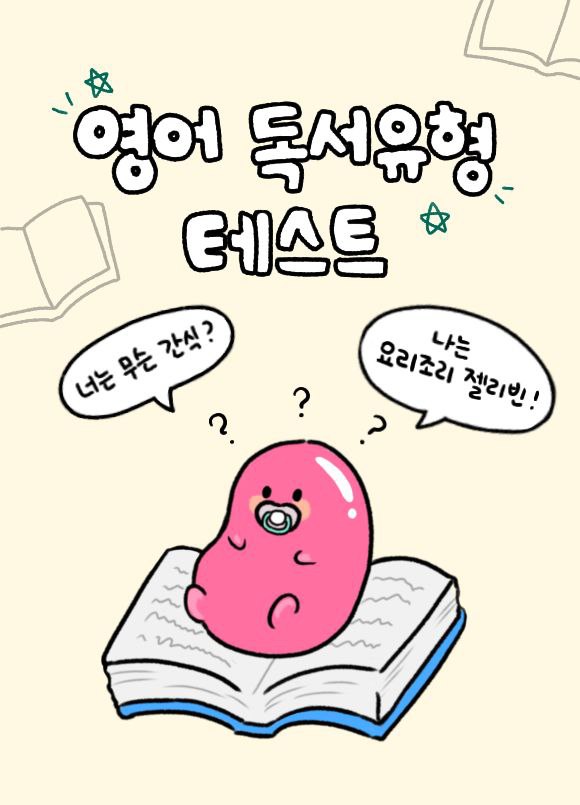 영어 독서유형
테스트
너는 무슨 간식?
나는
요리조리 젤리빈!
? ? ?